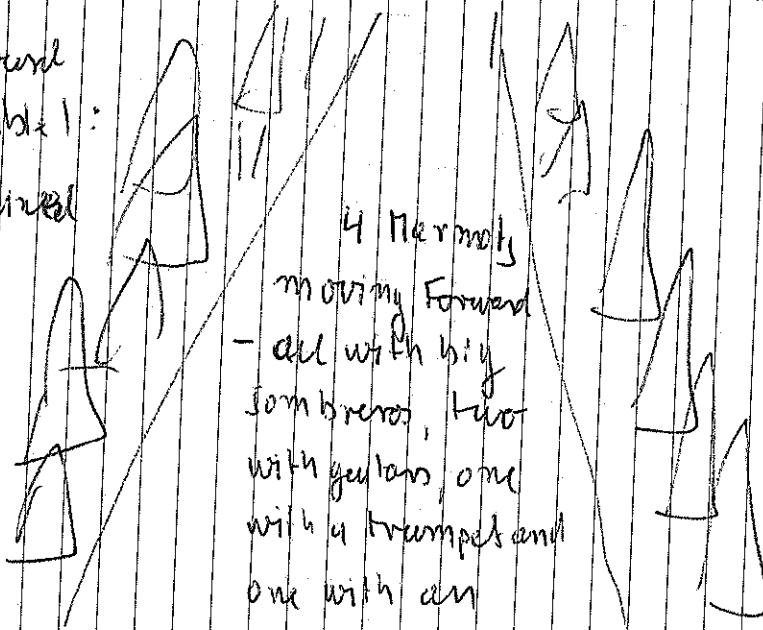 4 Marmots
moving Forward
- all with big
sombreros, two
with guitars, one
with a trumpet and
one with an